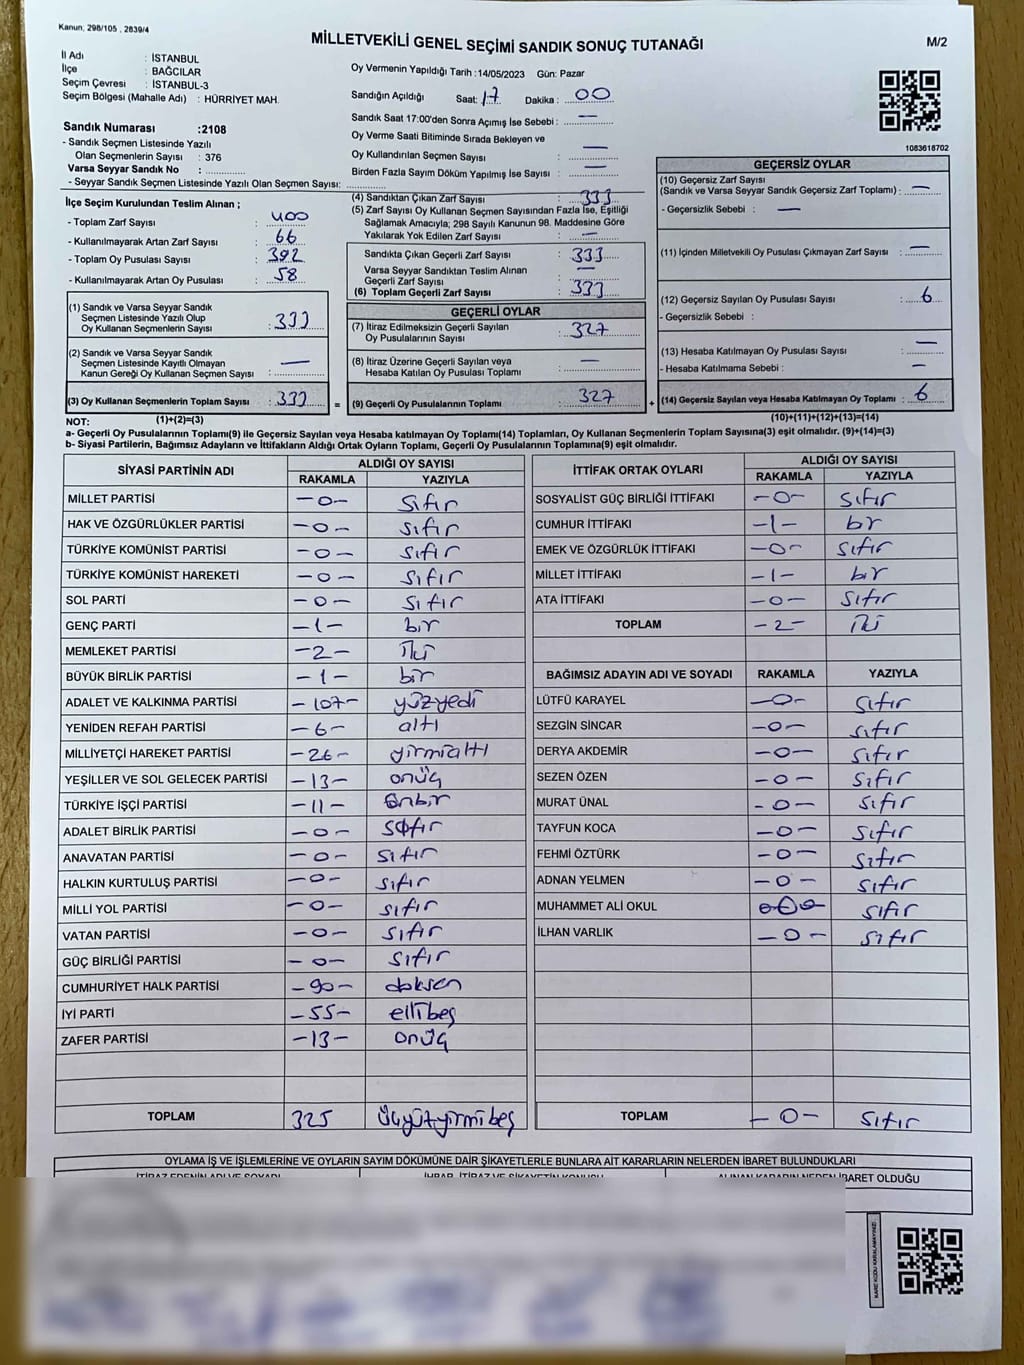 Kanun; 298/105 , 2839/4
MİLLETVEKİLİ GENEL SEÇİMİ SANDIK SONUÇ TUTANAĞI
M/2
İl Adı : İSTANBUL
İlçe : BAĞCILAR
Seçim Çevresi : İSTANBUL-3
Seçim Bölgesi (Mahalle Adı) : HÜRRİYET MAH.
Oy Vermenin Yapıldığı Tarih : 14/05/2023 Gün: Pazar
Sandığın Açıldığı Saat: 17 Dakika : 00
Sandık Saat 17:00'den Sonra Açımış İse Sebebi : —
Oy Verme Saati Bitiminde Sırada Bekleyen ve
Oy Kullandırılan Seçmen Sayısı —
Birden Fazla Sayım Döküm Yapılmış İse Sayısı : —
1083618702
Sandık Numarası :2108
- Sandık Seçmen Listesinde Yazılı
Olan Seçmenlerin Sayısı : 376
Varsa Seyyar Sandık No :
- Seyyar Sandık Seçmen Listesinde Yazılı Olan Seçmen Sayısı:
İlçe Seçim Kurulundan Teslim Alınan ;
- Toplam Zarf Sayısı : 400
- Kullanılmayarak Artan Zarf Sayısı : 66
- Toplam Oy Pusulası Sayısı : 392
- Kullanılmayarak Artan Oy Pusulası : 58
(1) Sandık ve Varsa Seyyar Sandık
Seçmen Listesinde Yazılı Olup
Oy Kullanan Seçmenlerin Sayısı : 333
(2) Sandık ve Varsa Seyyar Sandık
Seçmen Listesinde Kayıtlı Olmayan
Kanun Gereği Oy Kullanan Seçmen Sayısı : —
(3) Oy Kullanan Seçmenlerin Toplam Sayısı : 333
(4) Sandıktan Çıkan Zarf Sayısı : 333
(5) Zarf Sayısı Oy Kullanan Seçmen Sayısından Fazla İse, Eşitliği
Sağlamak Amacıyla; 298 Sayılı Kanunun 98. Maddesine Göre
Yakılarak Yok Edilen Zarf Sayısı : —
Sandıkta Çıkan Geçerli Zarf Sayısı : 333
Varsa Seyyar Sandıktan Teslim Alınan
Geçerli Zarf Sayısı : —
(6) Toplam Geçerli Zarf Sayısı : 333
GEÇERLİ OYLAR
(7) İtiraz Edilmeksizin Geçerli Sayılan
Oy Pusulalarının Sayısı : 327
(8) İtiraz Üzerine Geçerli Sayılan veya
Hesaba Katılan Oy Pusulası Toplamı : —
= (9) Geçerli Oy Pusulalarının Toplamı : 327
GEÇERSİZ OYLAR
(10) Geçersiz Zarf Sayısı
(Sandık ve Varsa Seyyar Sandık Geçersiz Zarf Toplamı) : —
- Geçersizlik Sebebi : —
(11) İçinden Milletvekili Oy Pusulası Çıkmayan Zarf Sayısı : —
(12) Geçersiz Sayılan Oy Pusulası Sayısı : 6
- Geçersizlik Sebebi :
(13) Hesaba Katılmayan Oy Pusulası Sayısı : —
- Hesaba Katılmama Sebebi : —
+ (14) Geçersiz Sayılan veya Hesaba Katılmayan Oy Toplamı : 6
NOT: (1)+(2)=(3)
(10)+(11)+(12)+(13)=(14)
a- Geçerli Oy Pusulalarının Toplamı(9) ile Geçersiz Sayılan veya Hesaba katılmayan Oy Toplamı(14) Toplamları, Oy Kullanan Seçmenlerin Toplam Sayısına(3) eşit olmalıdır. (9)+(14)=(3)
b- Siyasi Partilerin, Bağımsız Adayların ve İttifakların Aldığı Ortak Oyların Toplamı, Geçerli Oy Pusulalarının Toplamına(9) eşit olmalıdır.
SİYASİ PARTİNİN ADI ALDIĞI OY SAYISI
RAKAMLA YAZIYLA
MİLLET PARTİSİ -0- sıfır
HAK VE ÖZGÜRLÜKLER PARTİSİ -0- sıfır
TÜRKİYE KOMÜNİST PARTİSİ -0- sıfır
TÜRKİYE KOMÜNİST HAREKETİ -0- sıfır
SOL PARTİ -0- sıfır
GENÇ PARTİ -1- bir
MEMLEKET PARTİSİ -2- iki
BÜYÜK BİRLİK PARTİSİ -1- bir
ADALET VE KALKINMA PARTİSİ -107- yüzyedi
YENİDEN REFAH PARTİSİ -6- altı
MİLLİYETÇİ HAREKET PARTİSİ -26- yirmialtı
YEŞİLLER VE SOL GELECEK PARTİSİ -13- onüç
TÜRKİYE İŞÇİ PARTİSİ -11- onbir
ADALET BİRLİK PARTİSİ -0- sıfır
ANAVATAN PARTİSİ -0- sıfır
HALKIN KURTULUŞ PARTİSİ -0- sıfır
MİLLİ YOL PARTİSİ -0- sıfır
VATAN PARTİSİ -0- sıfır
GÜÇ BİRLİĞİ PARTİSİ -0- sıfır
CUMHURİYET HALK PARTİSİ -90- doksan
İYİ PARTİ -55- ellibeş
ZAFER PARTİSİ -13- onüç
TOPLAM 325 üçyüzyirmibeş
İTTİFAK ORTAK OYLARI ALDIĞI OY SAYISI
RAKAMLA YAZIYLA
SOSYALİST GÜÇ BİRLİĞİ İTTİFAKI -0- sıfır
CUMHUR İTTİFAKI -1- bir
EMEK VE ÖZGÜRLÜK İTTİFAKI -0- sıfır
MİLLET İTTİFAKI -1- bir
ATA İTTİFAKI -0- sıfır
TOPLAM -2- iki
BAĞIMSIZ ADAYIN ADI VE SOYADI RAKAMLA YAZIYLA
LÜTFÜ KARAYEL -0- sıfır
SEZGİN SİNCAR -0- sıfır
DERYA AKDEMİR -0- sıfır
SEZEN ÖZEN -0- sıfır
MURAT ÜNAL -0- sıfır
TAYFUN KOCA -0- sıfır
FEHMİ ÖZTÜRK -0- sıfır
ADNAN YELMEN -0- sıfır
MUHAMMET ALİ OKUL -0- sıfır
İLHAN VARLIK -0- sıfır
TOPLAM -0- sıfır
OYLAMA İŞ VE İŞLEMLERİNE VE OYLARIN SAYIM DÖKÜMÜNE DAİR ŞİKAYETLERLE BUNLARA AİT KARARLARIN NELERDEN İBARET BULUNDUKLARI
İTİRAZ EDENİN ADI VE SOYADI İHBAR, İTİRAZ VE ŞİKAYETİN KONUSU ALINAN KARARIN NEDEN İBARET OLDUĞU
KARE KODU KARALAMAYINIZ!